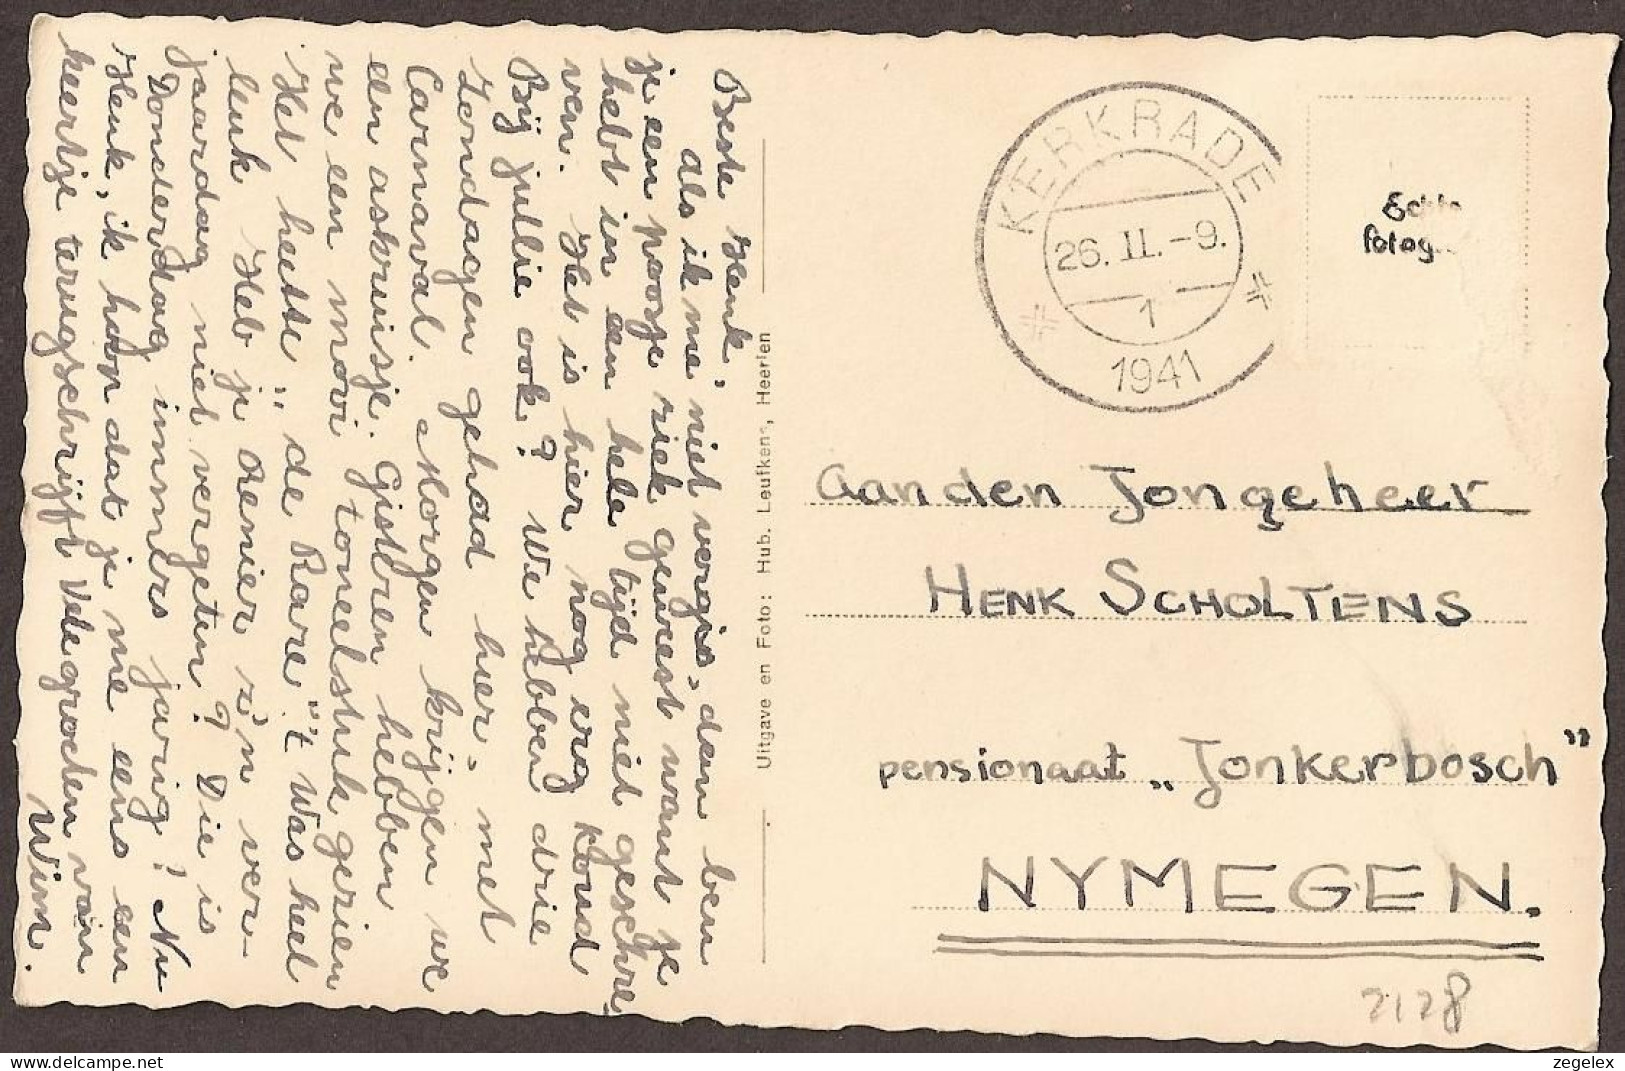 Beste Henk,
als ik me niet vergis, dan ben
je een poosje ziek geweest want je
hebt in een hele tijd niet geschre-
ven. Het is hier nog erg koud
Bij jullie ook? We hebben drie
Zondagen gehad hier, met
Carnaval. Morgen krijgen we
een askruisje. Gisteren hebben
we een mooi toneelstuk gezien
Het heette „de Rare" 't Was heel
leuk Heb je Reinier z'n ver-
jaardag niet vergeten? Die is
Donderdag immers jarig! Nu
Henk, ik hoop dat je me eens een
keertje terugschrijft Vele groeten van
Wim.
Uitgave en Foto: Hub. Leufkens, Heerlen
KERKRADE
26. II. - 9.
1
1941
Echte
fotog
Aan den Jongeheer
HENK SCHOLTENS
pensionaat „Jonkerbosch"
NYMEGEN.
2128
zegelex